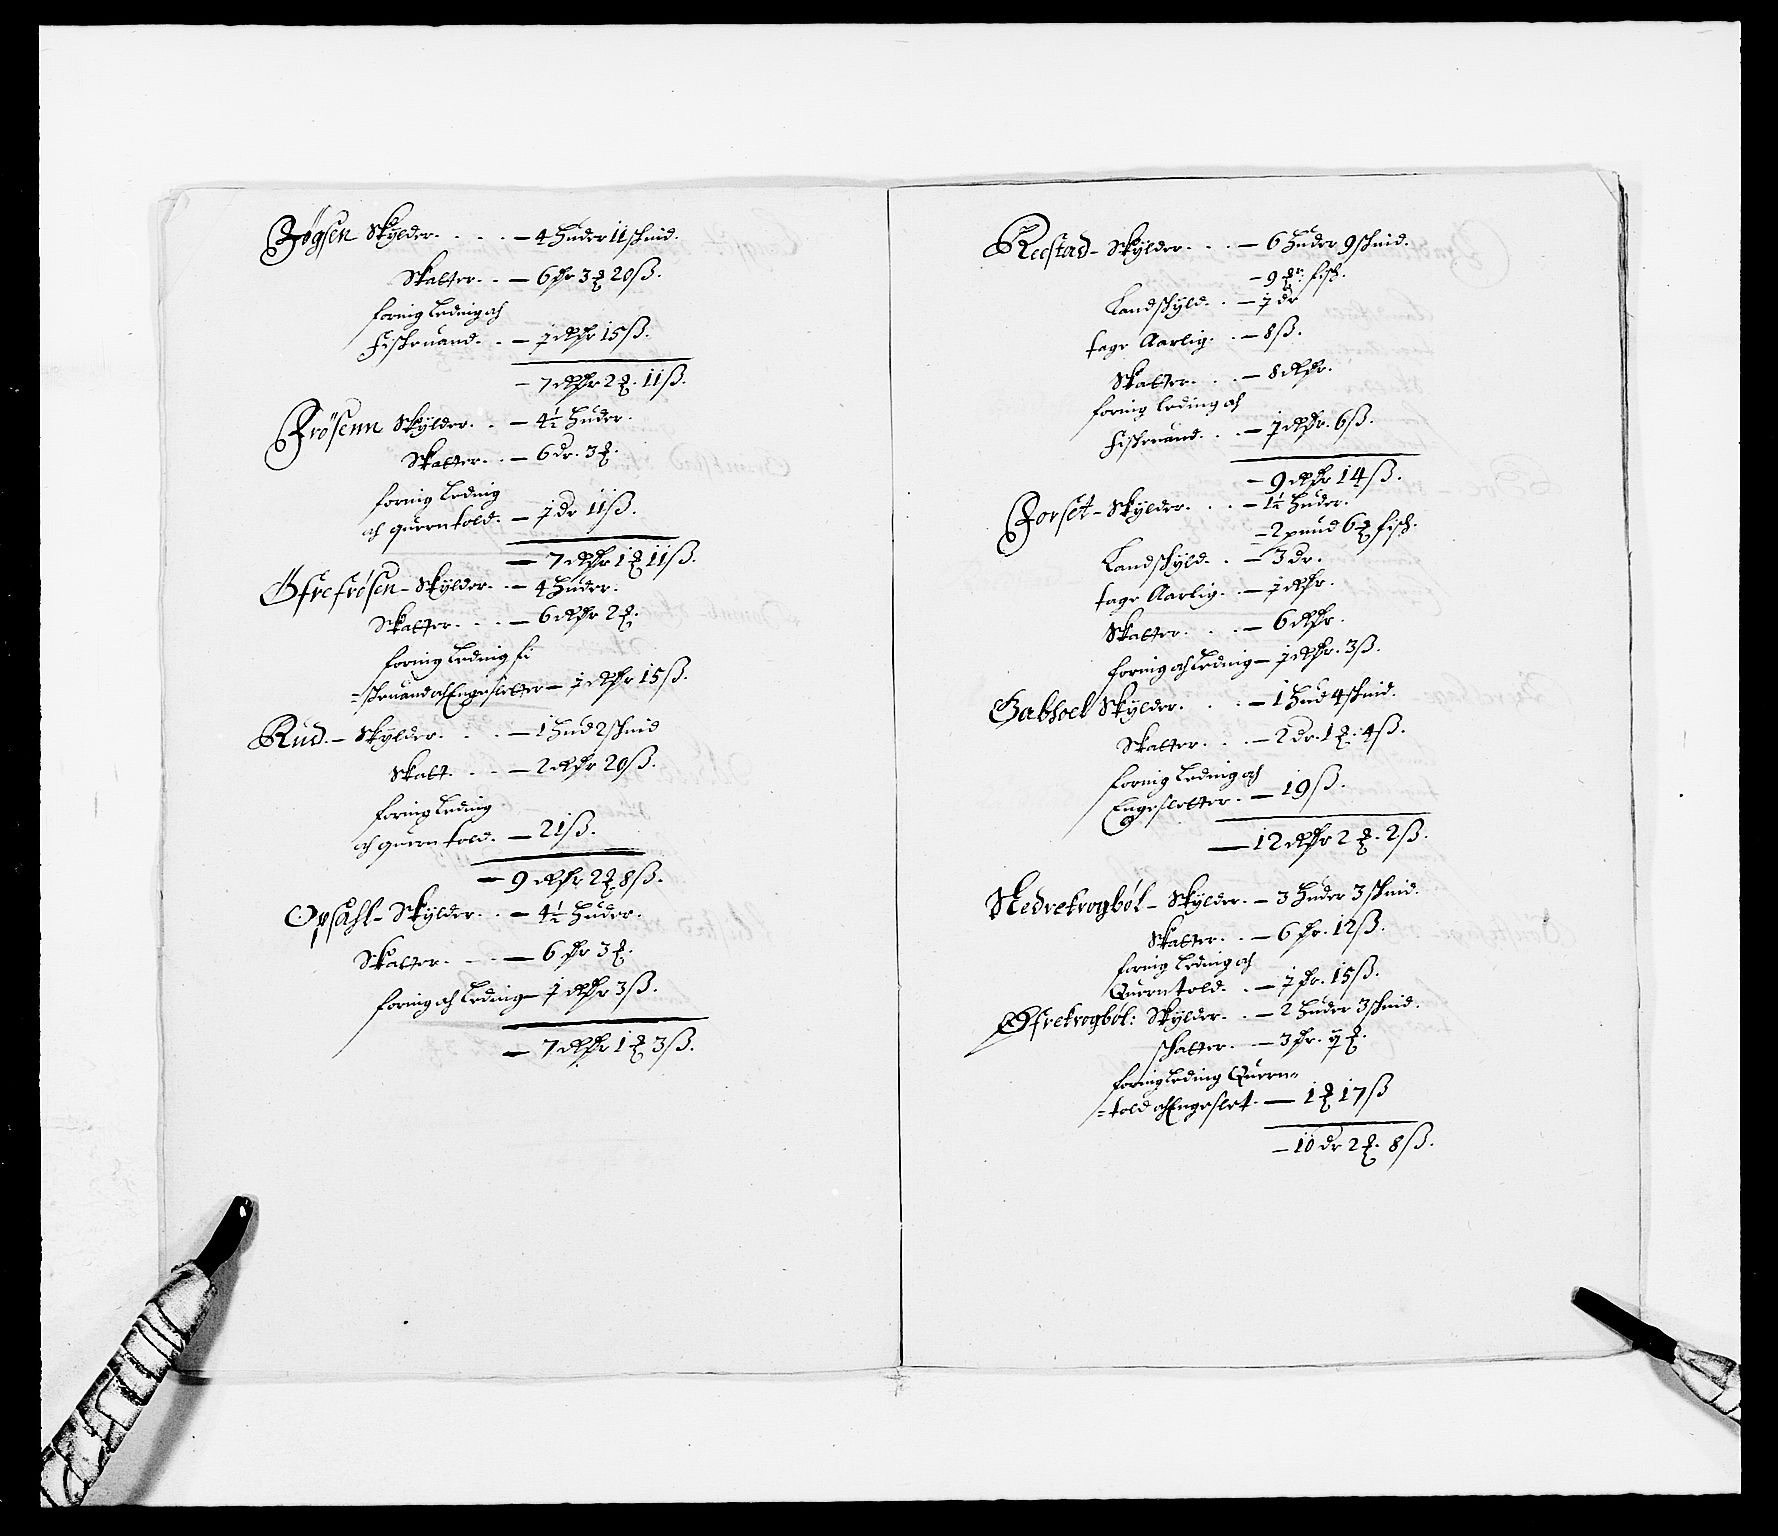 Jøgsen Skylder. . . . — 4 Huder 11 schind.
Skatter. . — 6 dr 3 ℥ 20 ß.
foring Leding och
Fischeuand. . — 1 Rdr 15 ß.
— 7 Rdr 2 ℥. 11 ß.
Frösenn Skylder. . — 4½ Huder.
Skatter. . — 6 dr. 3 ℥.
foring Leding
och querntold. — 1 dr 11 ß.
— 7 Rdr 1 ℥ 11 ß.
Öfrefrösen — Skylder. . — 4 Huder.
Skatter. . . — 6 Rdr 2 ℥.
foring Leding fi
= scheuand och Engeslætter — 1 Rdr 15 ß.
Rud. — Skylder. . . — 1 Hud 2 schind
Skatt. . . — 2 Rdr 20 ß.
foring Leding
och quern told. — 21 ß.
— 9 Rdr 2 ℥ 8 ß.
Opsahl — Skylder. . — 4½ Huder.
Skatter. . . — 6 dr 3 ℥.
foring och Leding — 1 Rdr 3 ß.
— 7 Rdr 1 ℥ 3 ß.
Reestad — Skylder. . . — 6 Huder 9 schind.
— 9 ℥r. fisch.
Landschyld. . — 1 dr
tage Aarlig. . — 8 ß.
Skatter. . . — 8 Rdr.
foring leding och
Fischeuand. . . — 1 Rdr. 6 ß.
— 9 Rdr 14 ß.
Forset — Skylder. . . — 1½ Huder.
— 2 pund 6 ℥ fisch.
Landschyld. . — 3 dr.
tage Aarlig. . — 1 Rdr.
Skatter. . . — 6 Rdr.
foring och Leding — 1 Rdr. 3 ß.
Gabhoel Skylder. . . — 1 Hud 4 schind.
Skatter. . . — 2 dr. 1 ℥. 4 ß.
foring Leding och
Engesletter. — 19 ß.
— 12 Rdr 2 ℥. 2 ß.
Nedrekrogbøl — Skylder. — 3 Huder 3 schind.
Skatter. . — 6 dr. 12 ß.
foring Leding och
Querntold. . — 1 dr. 15 ß.
Øfrekrogbøl: Skylder. . — 2 Huder 3 schind.
schatter. — 3 dr. 1 ℥.
foring leding Quern=
= told och Engeslet. — 1 ℥ 17 ß
— 10 dr 2 ℥. 8 ß.